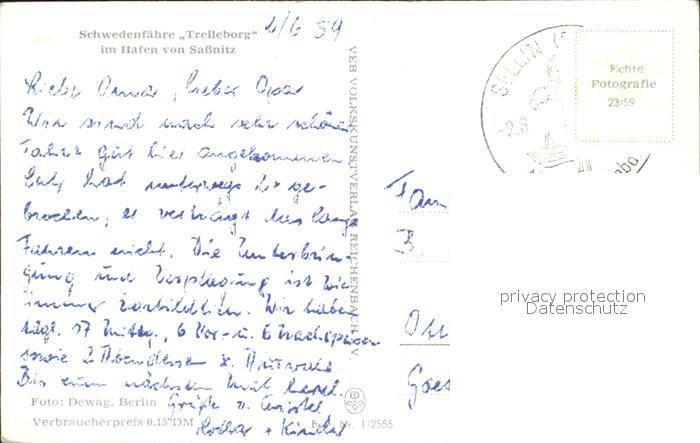 Schwedenfähre „Trelleborg"
im Hafen von Saßnitz
2/6 59
Liebe Oma, lieber Opa
Wir sind nach sehr schöner
Fahrt gut hier angekommen
hat unterwegs 2x ge-
brochen, er verträgt das lange
Fahren nicht. Die Unterbrin-
gung und Verpflegung ist wie
immer vorbildlich. Wir haben
tägl. 17 Mittag, 6 Vor- u. 6 Nachspeisen
sowie 2 Abendessen z. Auswahl
Bis zum nächsten Mal herzl.
Grüße v. Christel
Lothar + Kinder
Foto: Dewag, Berlin
Verbraucherpreis 0,15 DM
Best. Nr. 1/2555
VEB VOLKSKUNSTVERLAG REICHENBACH I. V.
SELLIN
-2.6
Echte
Fotografie
23/59
Fam
B.
privacy protection
Datenschutz